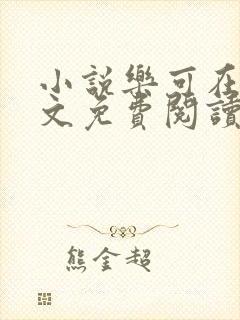 小說樂可在
文免費閱讀
熊金超